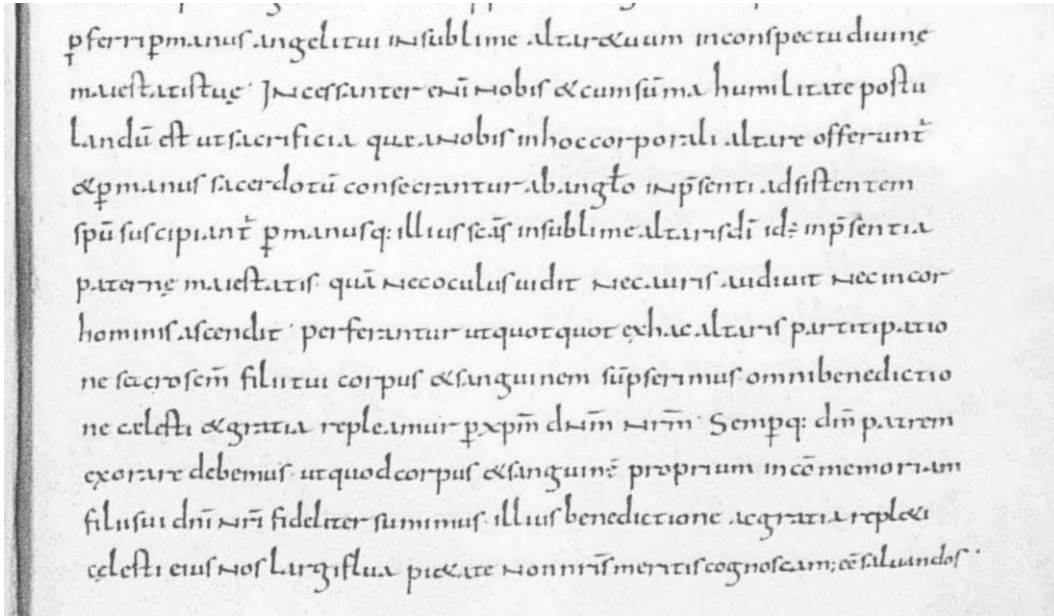 ꝑferri ꝑmanus angeli tui insublime altare tuum inconspectu divinę
maiestatis tuę· Incessanter enī nobis & cum sūma humilitate postu
landū est ut sacrificia quae a nobis in hoc corporali altare offerunt̄
& ꝑmanus sacerdotū consecrantur ab angło inp̄senti adsistentem
spū suscipiant̄ ꝑmanusq: illius scīs insublime altaris dī id÷ inp̄sentia
paternę maiestatis· quā nec oculus uidit nec auris audiuit nec in cor
hominis ascendit· perferantur ut quot quot ex hac altaris partitipatio
ne sacrosc̄m filii tui corpus & sanguinem sūpserimus· omni benedictio
ne cælesti & gratia repleamur ꝑ xp̄m dnm̄ nrm̄· Semꝑq: dm̄ patrem
exorare debemus· ut quod corpus & sanguinē proprium in cōmemoriam
filii sui dnī nrī fideliter sumimus· illius benedictione ac gratia repl&i
cęlesti eius nos largiflua pi&ate non nrīs meritis cognoscam; eē saluandos·